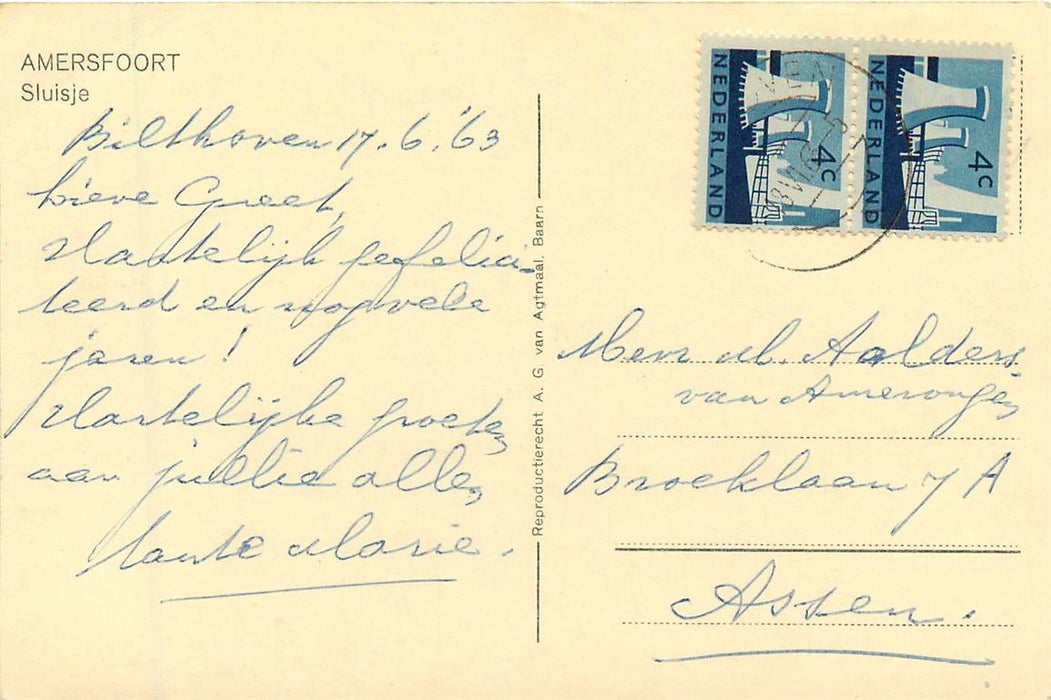 AMERSFOORT
Sluisje
Bilthoven 17.6.'63
Lieve Greet,
Hartelijk gefelici-
teerd en nog vele
jaren!
Hartelijke groeten
aan jullie allen
tante Marie.
Reproductierecht A. G. van Agtmaal, Baarn
NEDERLAND 4c
NEDERLAND 4c
Mevr M. Aalders-
van Amerongen
Broeklaan 7 A
Assen.